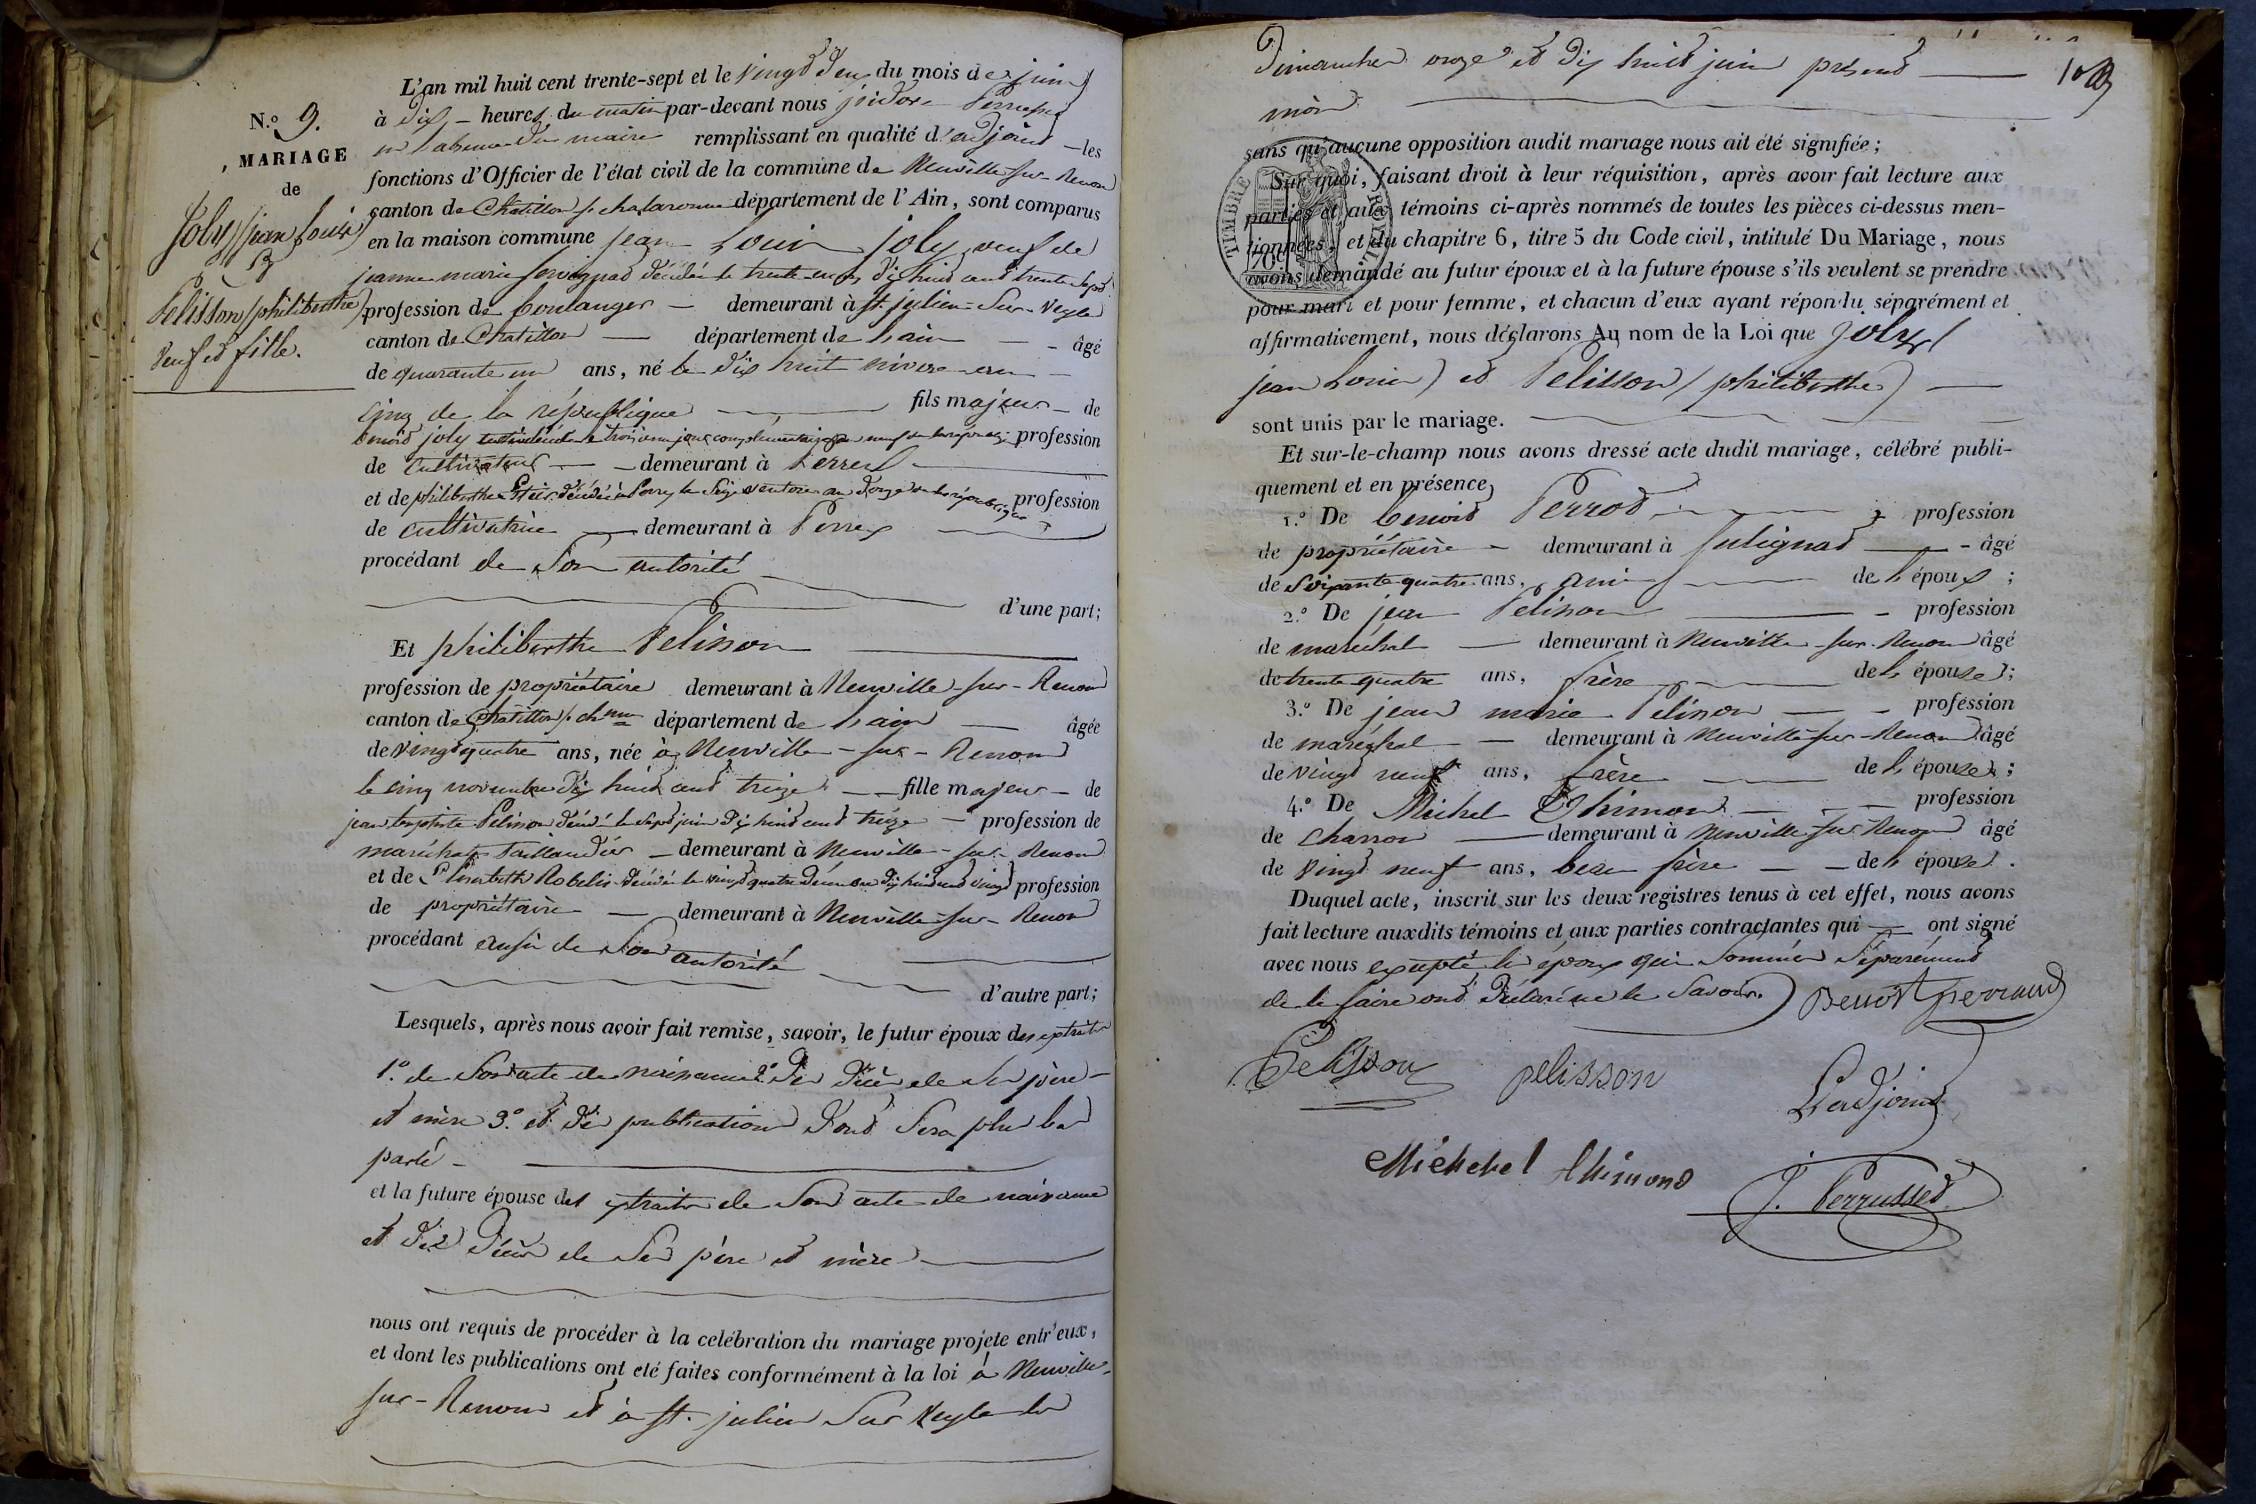 N.o 9.
MARIAGE
de
Joly (jean Louis)
Et
Pelisson (philiberthe)
veuf et fille.
L'an mil huit cent trente-sept et le vingt deux du mois de juin
à dix heures du matin par-devant nous isidore Perrusset
en l'absence du maire remplissant en qualité d'adjoint les
fonctions d'Officier de l'état civil de la commune de Neuville-sur-Renom
canton de Chatillon s. chalaronne département de l'Ain, sont comparus
en la maison commune jean Louis joly, veuf de
jeanne marie décédée le trente mars dix huit cent trente sept
profession de boulanger demeurant à St. julien-Sur-Veyle
canton de Chatillon département de l'ain âgé
de quarante un ans, né le dix huit nivose an
cinq de la république fils majeur de
benoit joly troisieme jour complementaire an neuf de la répub. profession
de cultivateur demeurant à Perrex
et de philiberthe décédée à Perrex le seize ventose an douze de la république profession
de cultivatrice demeurant à Perrex
procédant de Son autorité
d'une part;
Et philiberthe Pelisson
profession de propriétaire demeurant à Neuville-sur-Renom
canton de Chatillon s. chnne département de l'ain âgée
de vingt quatre ans, née à Neuville-sur-Renom
le cinq novembre dix huit cent treize fille majeur de
jean baptiste Pelisson décédé le sept juin dix huit cent treize profession de
maréchal taillandier demeurant à Neuville-sur-Renom
et de Elisabeth Robelin décédée le vingt quatre décembre dix huit cent vingt profession
de propriétaire demeurant à Neuville-sur-Renom
procédant aussi de Son autorité
d'autre part;
Lesquels, après nous avoir fait remise, savoir, le futur époux des extraits
1.o de Son acte de naissance 2o des décès de Ses père
et mère 3.o et des publications dont Sera plus bas
parlé
et la future épouse des extraits de Son acte de naissance
et des décès de Ses père et mère
nous ont requis de procéder à la celébration du mariage projete entr'eux,
et dont les publications ont eté faites conformément à la loi à Neuville-
sur-Renom et à St. julien Sur Veyle les
Dimanches onze et dix huit juin présent
mois
109
TIMBRE ROYAL
70c
sans qu'aucune opposition audit mariage nous ait été signifiée;
Sur quoi, faisant droit à leur réquisition, après avoir fait lecture aux
parties et aux témoins ci-après nommés de toutes les pièces ci-dessus men-
tionnées, et du chapitre 6, titre 5 du Code civil, intitulé Du Mariage, nous
avons demandé au futur époux et à la future épouse s'ils veulent se prendre
pour mari et pour femme, et chacun d'eux ayant répondu séparément et
affirmativement, nous déclarons Au nom de la Loi que joly (
jean Louis) et Pelisson (philiberthe)
sont unis par le mariage.
Et sur-le-champ nous avons dressé acte dudit mariage, célébré publi-
quement et en présence,
1.o De benoit Perrod profession
de propriétaire demeurant à Sulignat âgé
de Soixante quatre ans, ami de l'époux;
2.o De jean Pelisson profession
de maréchal demeurant à Neuville-sur-Renom âgé
de trente quatre ans, frère de l'épouse;
3.o De jean marie Pelisson profession
de maréchal demeurant à Neuville-sur-Renom âgé
de vingt neuf ans, frère de l'épouse;
4.o De Michel Thimon profession
de charron demeurant à Neuville-sur-Renom âgé
de vingt neuf ans, beau frère de l'épouse.
Duquel acte, inscrit sur les deux registres tenus à cet effet, nous avons
fait lecture auxdits témoins et aux parties contractantes qui ont signé
avec nous excepté les époux qui Sommés Séparément
de le faire ont déclaré ne le Savoir. Benoit perraud
Pelisson pelisson
L'adjoint
Michehel thimond
J. Perrusset